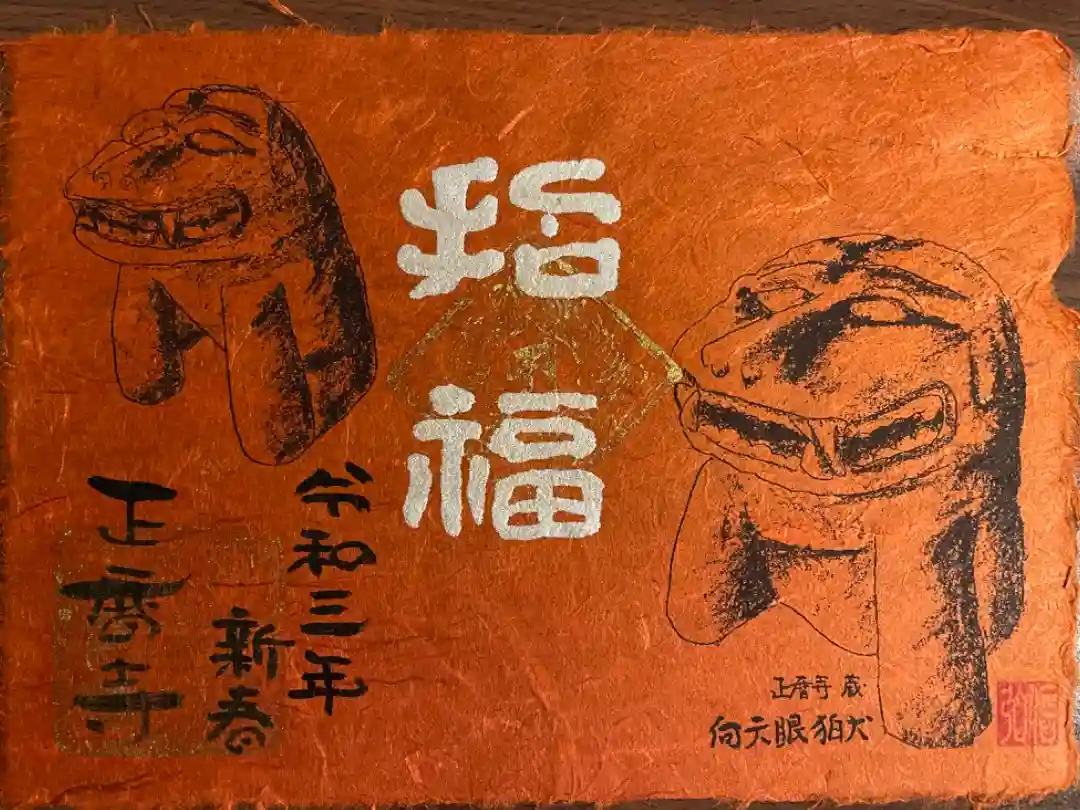 招福
正暦寺 蔵
向天眼狛犬
令和三年
新春
正暦寺